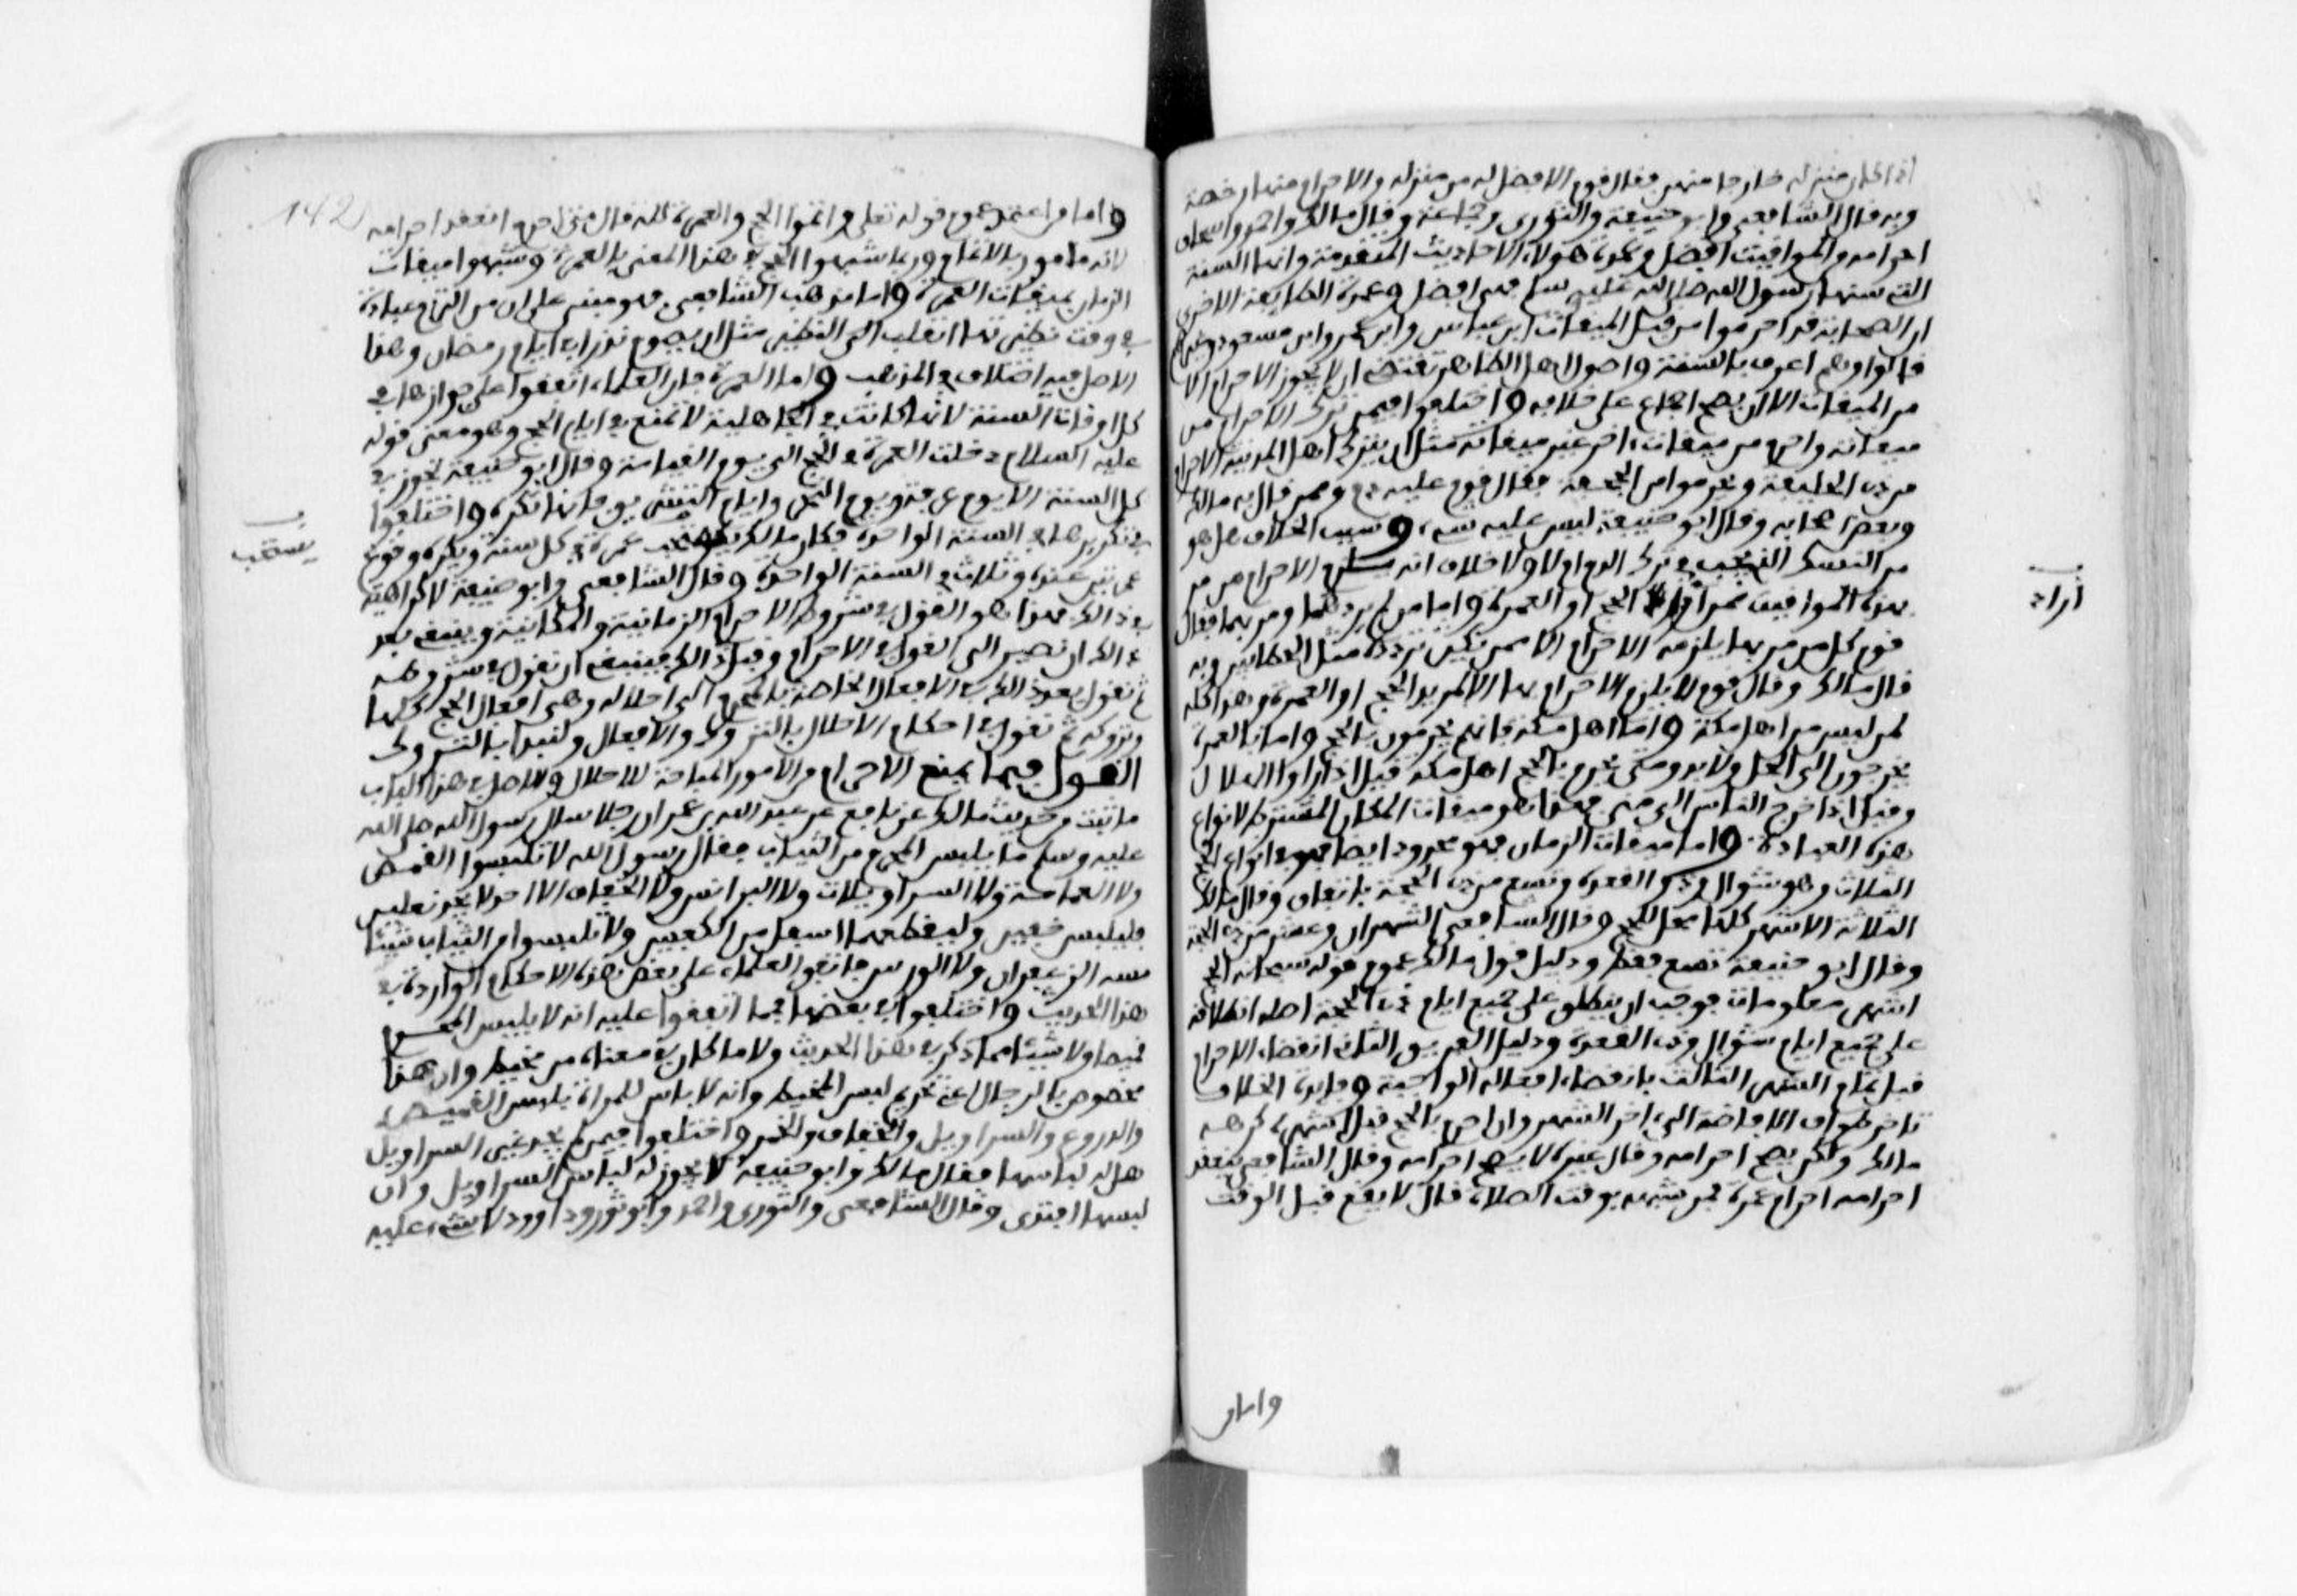 اذا كان منزله خارجا منهن فقال قوم الافضل له من منزله والاحرام منها رخصة
وبه قال الشافعي وابو حنيفة والثوري وجماعة وقال مالك واحمد واسحاق
احرامه من المواقيت افضل وعمدة هولاء الاحاديث المتقدمة وانها السنة
التي سنها رسول الله صلى الله عليه وسلم فهي افضل وعمدة الطايفة الاخرى
ان الصحابة قد احرموا من قبل الميقات ابن عباس وابن عمر وابن مسعود وغيرهم
قالوا وهم اعرف بالسنة واصول اهل الظاهر تقتضي ان لا يجوز الاحرام الا
من الميقات الا ان يصح اجماع على خلافه واختلفوا فيمن ترك الاحرام من
ميقاته واحرم من ميقات اخر غير ميقاته مثل ان يترك اهل المدينة الاحرام
من ذي الحليفة ويحرموا من الجحفة فقال قوم عليه دم وممن قال به مالك
وبعض اصحابه وقال ابو حنيفة ليس عليه شيء وسبب الخلاف هل هو
من النسك الذي يجب في ترك الدم ام لا ولا خلاف انه يلزم الاحرام من مر
بهذه المواقيت ممن اراد الحج او العمرة واما من لم يردهما ومر بهما فقال
قوم كل من مر بها يلزمه الاحرام الا من يكثر تردده مثل الحطابين وبه
قال مالك وقال قوم لا يلزم الاحرام بها الا لمريد الحج او العمرة وهذا كله
لمن ليس من اهل مكة واما اهل مكة فانهم يحرمون بالحج واما بالعمرة
يخرجون الى الحل ولا بد ومتى يحرم بالحج اهل مكة قيل اذا راوا الهلال
وقيل اذا خرج الناس الى منى فهذا هو ميقات المكان المشترط لانواع
هذه العبادة واما ميقات الزمان فهو محدود ايضا في انواع الحج
الثلاث وهو شوال وذو القعدة وتسع من ذي الحجة باتفاق وقال مالك
الثلاثة الاشهر كلها محل للحج وقال الشافعي الشهران وعشر من ذي الحجة
وقال ابو حنيفة تسع فقط ودليل قول مالك عموم قوله سبحانه الحج
اشهر معلومات فوجب ان ينطلق على جميع ايام ذي الحجة اصله انطلاقه
على جميع ايام شوال وذي القعدة ودليل الفريق الثاني انقضاء الاحرام
قبل تمام الشهر الثالث بانقضاء افعاله الواجبة وفايدة الخلاف
تاخر طواف الافاضة الى اخر الشهر وان احرم بالحج قبل اشهره كرهه
مالك ولكن يصح احرامه وقال غيره لا يصح احرامه وقال الشافعي ينعقد
احرامه احرام عمرة فمن شبهه بوقت الصلاة قال لا يقع قبل الوقت
اراد
142
واما من اعتمد عموم قوله تعلى واتموا الحج والعمرة لله قال متى احرم انعقد احرامه
لانه مامور بالاتمام وربما شبهوا الحج في هذا المعنى بالعمرة وشبهوا ميقات
الزمان بميقات العمرة واما مذهب الشافعي فهو مبني على ان من التزم عبادة
في وقت نظيرتها انقلب الى النظير مثل ان يصوم نذرا في ايام رمضان وهذا
الاصل فيه اختلاف في المذهب واما العمرة فان العلماء اتفقوا على جوازها في
كل اوقات السنة لانها كانت في الجاهلية لا تمنع في ايام الحج وهو معنى قوله
عليه السلام دخلت العمرة في الحج الى يوم القيامة وقال ابو حنيفة تجوز في
كل السنة الا يوم عرفة ويوم النحر وايام التشريق فانها تكره واختلفوا
في تكريرها في السنة الواحدة فكان مالك يستحب عمرة في كل سنة ويكره وقوع
عمرتين عنده وثلاث في السنة الواحدة وقال الشافعي وابو حنيفة لا كراهية
في ذالك فهذا هو القول في شروط الاحرام الزمانية والمكانية وينبغي بعد
ذالك ان نصير الى القول في الاحرام وقبل ذالك فينبغي ان نقول في شروطه
ثم نقول بعد ذالك في الافعال الخاصة بالمحرم الى احلاله وهي افعال الحج كلها
وتروكه ثم نقول في احكام الاخلال بالتروك والافعال ولنبدا بالتروك
القول فيما يمنع الاحرام من الامور المباحة للاحلال والاصل في هذا الباب
ما ثبت من حديث مالك عن نافع عن عبد الله بن عمر ان رجلا سال رسول الله صلى الله
عليه وسلم ما يلبس المحرم من الثياب فقال رسول الله لا تلبسوا القمص
ولا العمامة ولا السراويلات ولا البرانس ولا الخفاف الا احد لا يجد نعلين
فليلبس خفين وليقطعهما اسفل من الكعبين ولا تلبسوا من الثياب شيئا
مسه الزعفران ولا الورس فاتفق العلماء على بعض هذه الاحكام الواردة في
هذا الحديث واختلفوا في بعضها فمما اتفقوا عليه انه لا يلبس المحرم
قميصا ولا شيئا مما ذكر في هذا الحديث ولا ما كان في معناه من مخيط وان هذا
مخصوص بالرجال اعني تحريم لبس المخيط وانه لا باس للمراة بلبس القميص
والدروع والسراويل والخفاف والخمر واختلفوا فيمن لم يجد غير السراويل
هل له لباسها فقال مالك وابو حنيفة لا يجوز له لباس السراويل وان
لبسها افتدى وقال الشافعي والثوري واحمد وابو ثور وداوود لا شيء عليه
يستحب